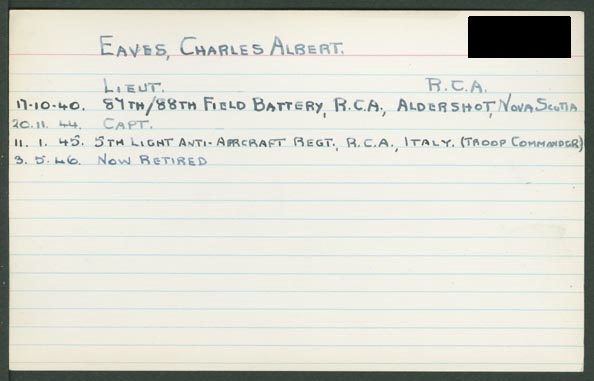 EAVES, CHARLES ALBERT.
LIEUT. R.C.A.
17-10-40. 87TH/88TH FIELD BATTERY, R.C.A., ALDERSHOT, NOVA SCOTIA
20.11.44. CAPT.
11.1.45. 5TH LIGHT ANTI-AIRCRAFT REGT., R.C.A., ITALY. (TROOP COMMANDER)
3.5.46. NOW RETIRED